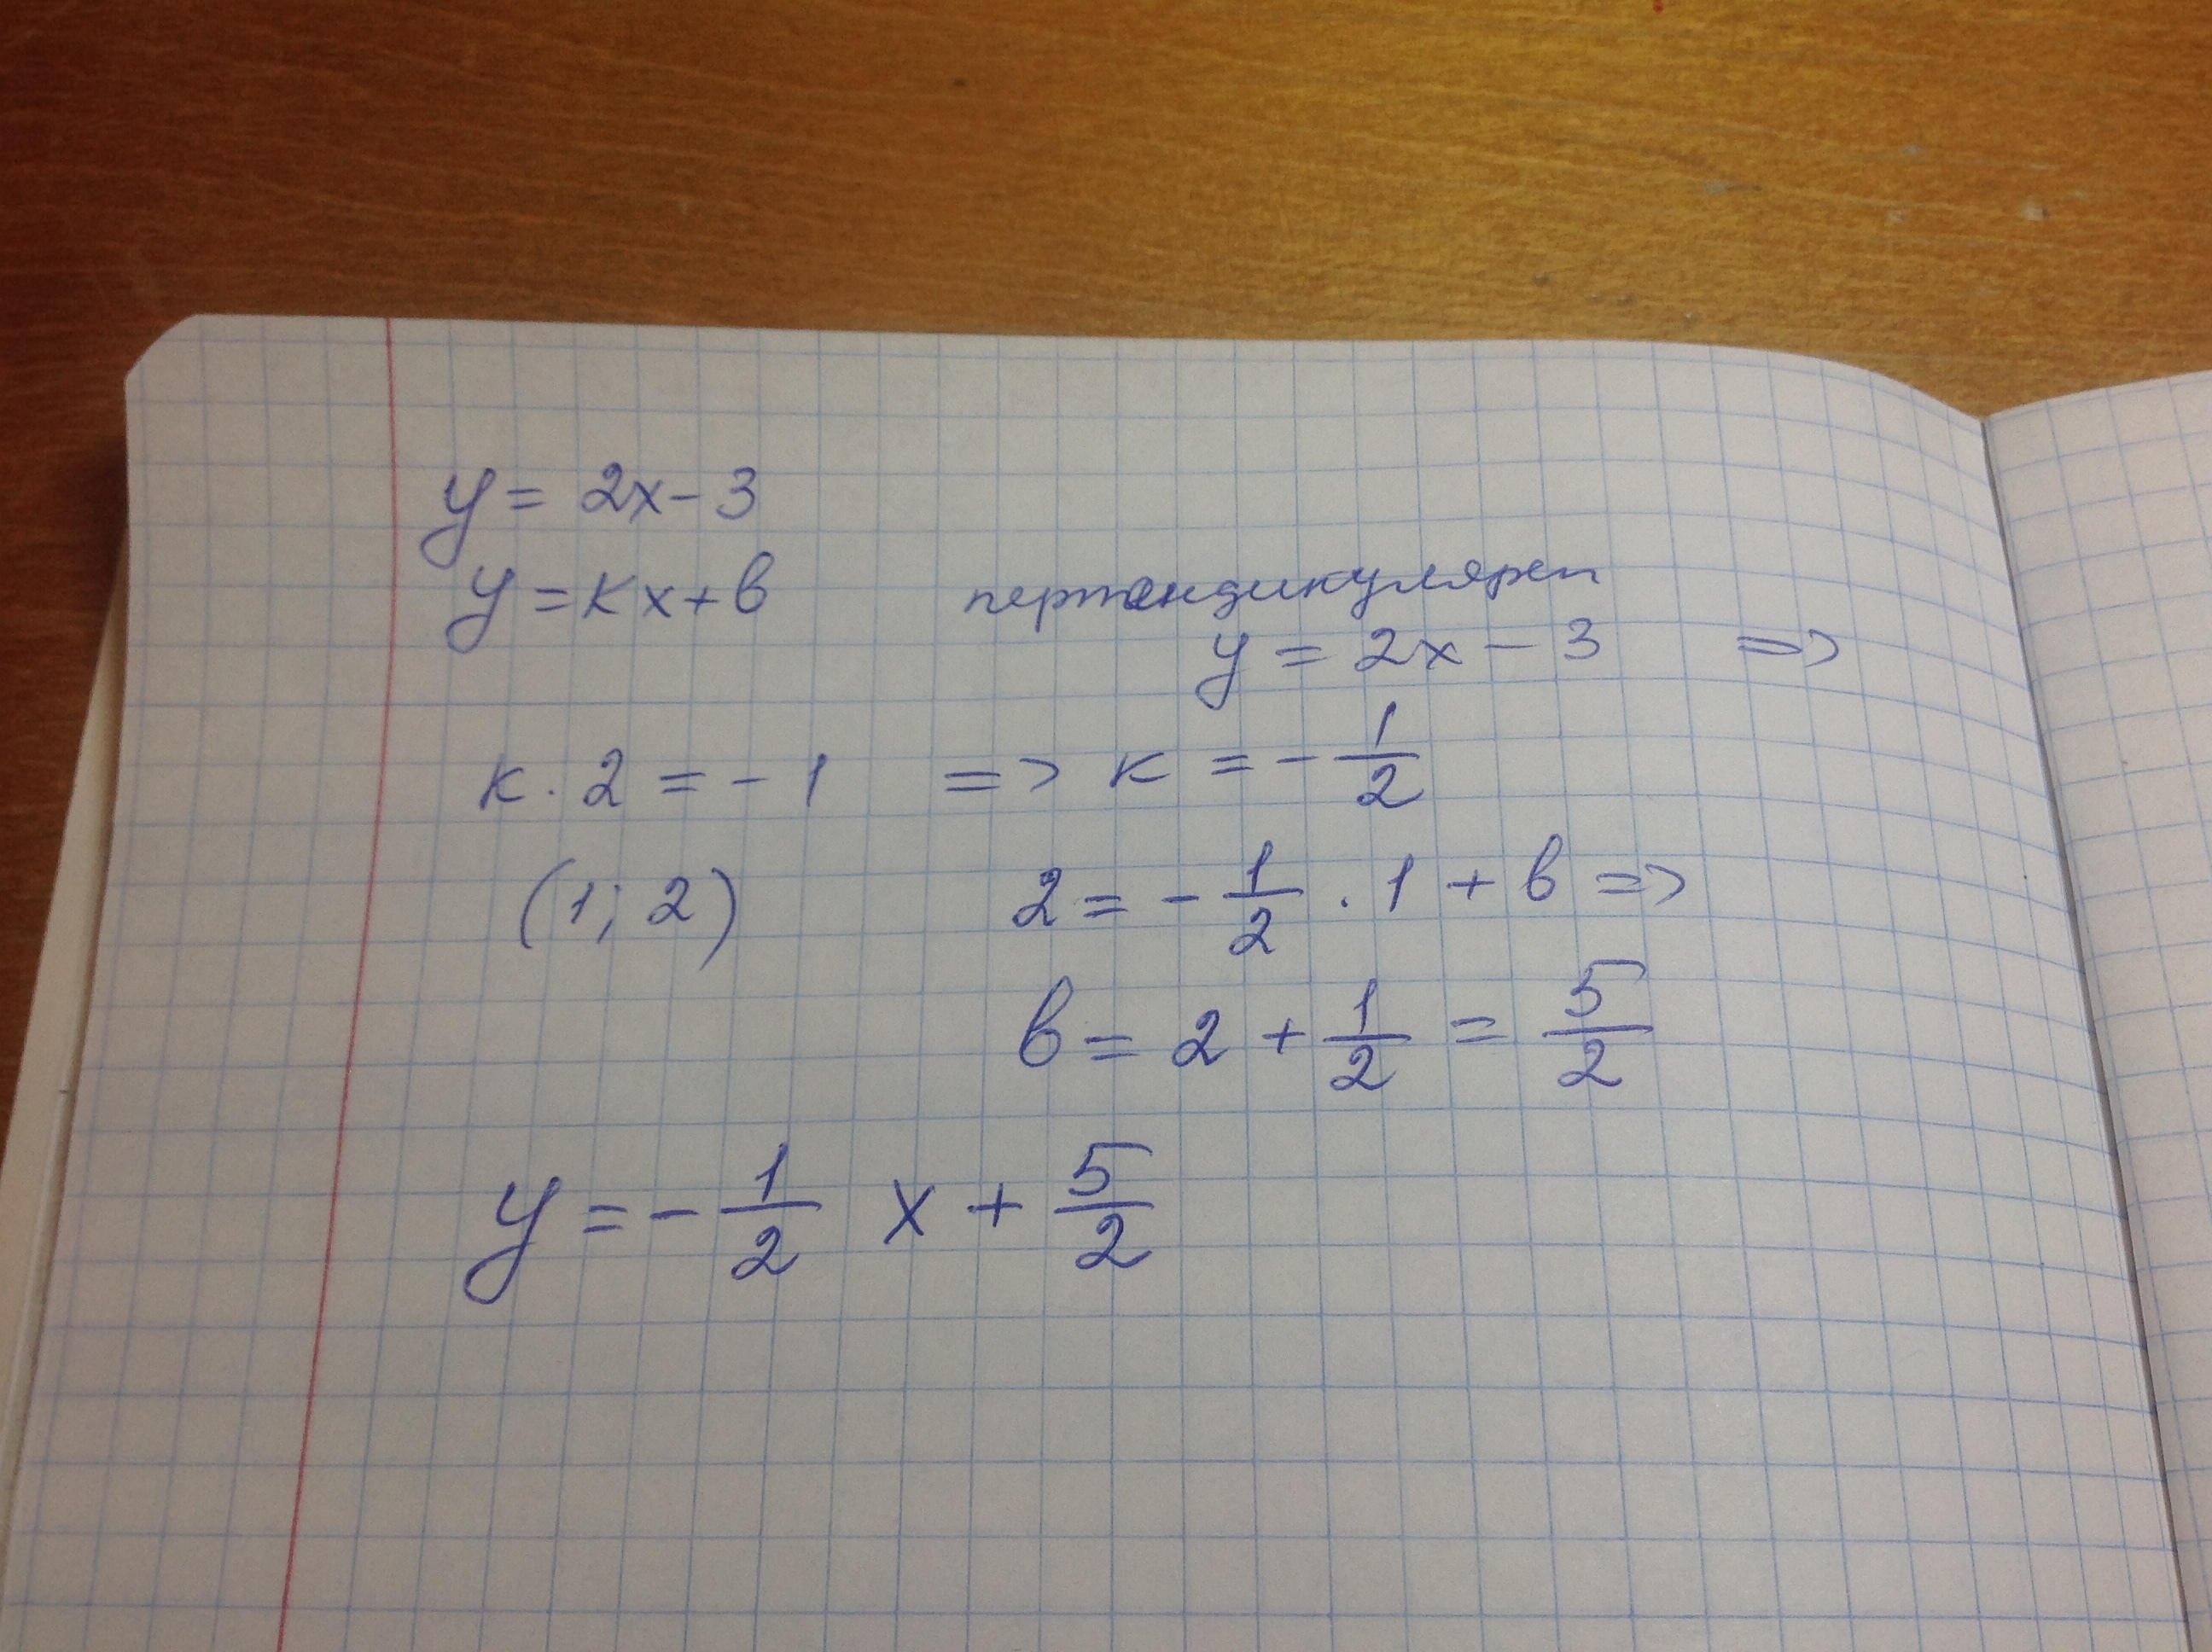 y = 2x - 3
y = kx + b перпендикулярен
y = 2x - 3 =>
k · 2 = - 1 => k = - 1/2
(1; 2) 2 = - 1/2 · 1 + b =>
b = 2 + 1/2 = 5/2
y = - 1/2 x + 5/2